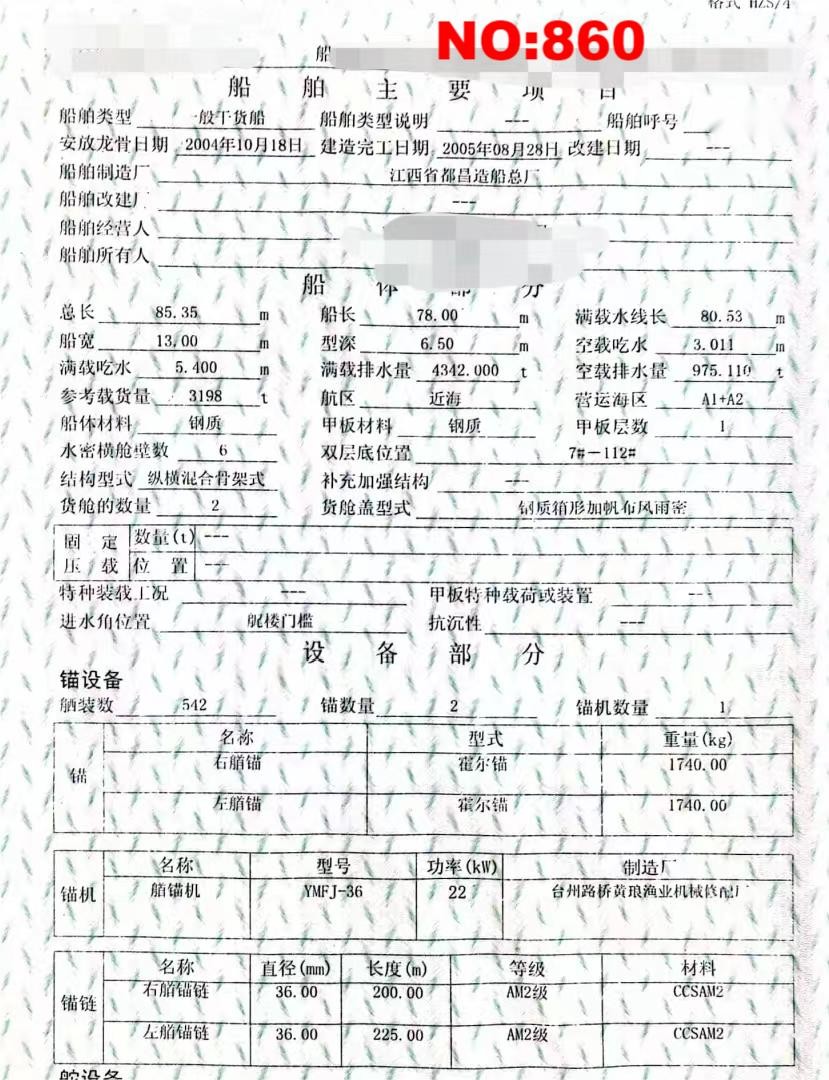 格式 HZS/4
NO:860
船
船舶主要项目
船舶类型 一般干货船 船舶类型说明 --- 船舶呼号
安放龙骨日期 2004年10月18日 建造完工日期 2005年08月28日 改建日期 ---
船舶制造厂 江西省都昌造船总厂
船舶改建厂 ---
船舶经营人
船舶所有人
船体部分
总长 85.35 m 船长 78.00 m 满载水线长 80.53 m
船宽 13.00 m 型深 6.50 m 空载吃水 3.011 m
满载吃水 5.400 m 满载排水量 4342.000 t 空载排水量 975.110 t
参考载货量 3198 t 航区 近海 营运海区 A1+A2
船体材料 钢质 甲板材料 钢质 甲板层数 1
水密横舱壁数 6 双层底位置 7#-112#
结构型式 纵横混合骨架式 补充加强结构 ---
货舱的数量 2 货舱盖型式 钢质箱形加帆布风雨密
固定 数量(t) ---
压载 位置 ---
特种装载工况 --- 甲板特种载荷或装置 ---
进水角位置 艉楼门槛 抗沉性 ---
设备部分
锚设备
舾装数 542 锚数量 2 锚机数量 1
名称 型式 重量(kg)
锚 右艏锚 霍尔锚 1740.00
左艏锚 霍尔锚 1740.00
名称 型号 功率(kW) 制造厂
锚机 艏锚机 YMFJ-36 22 台州路桥黄琅渔业机械修配厂
名称 直径(mm) 长度(m) 等级 材料
锚链 右艏锚链 36.00 200.00 AM2级 CCSAM2
左艏锚链 36.00 225.00 AM2级 CCSAM2
舵设备